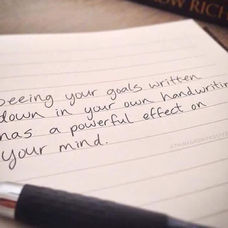 OW RICH
Seeing your goals written
down in your own handwriting
has a powerful effect on
your mind.